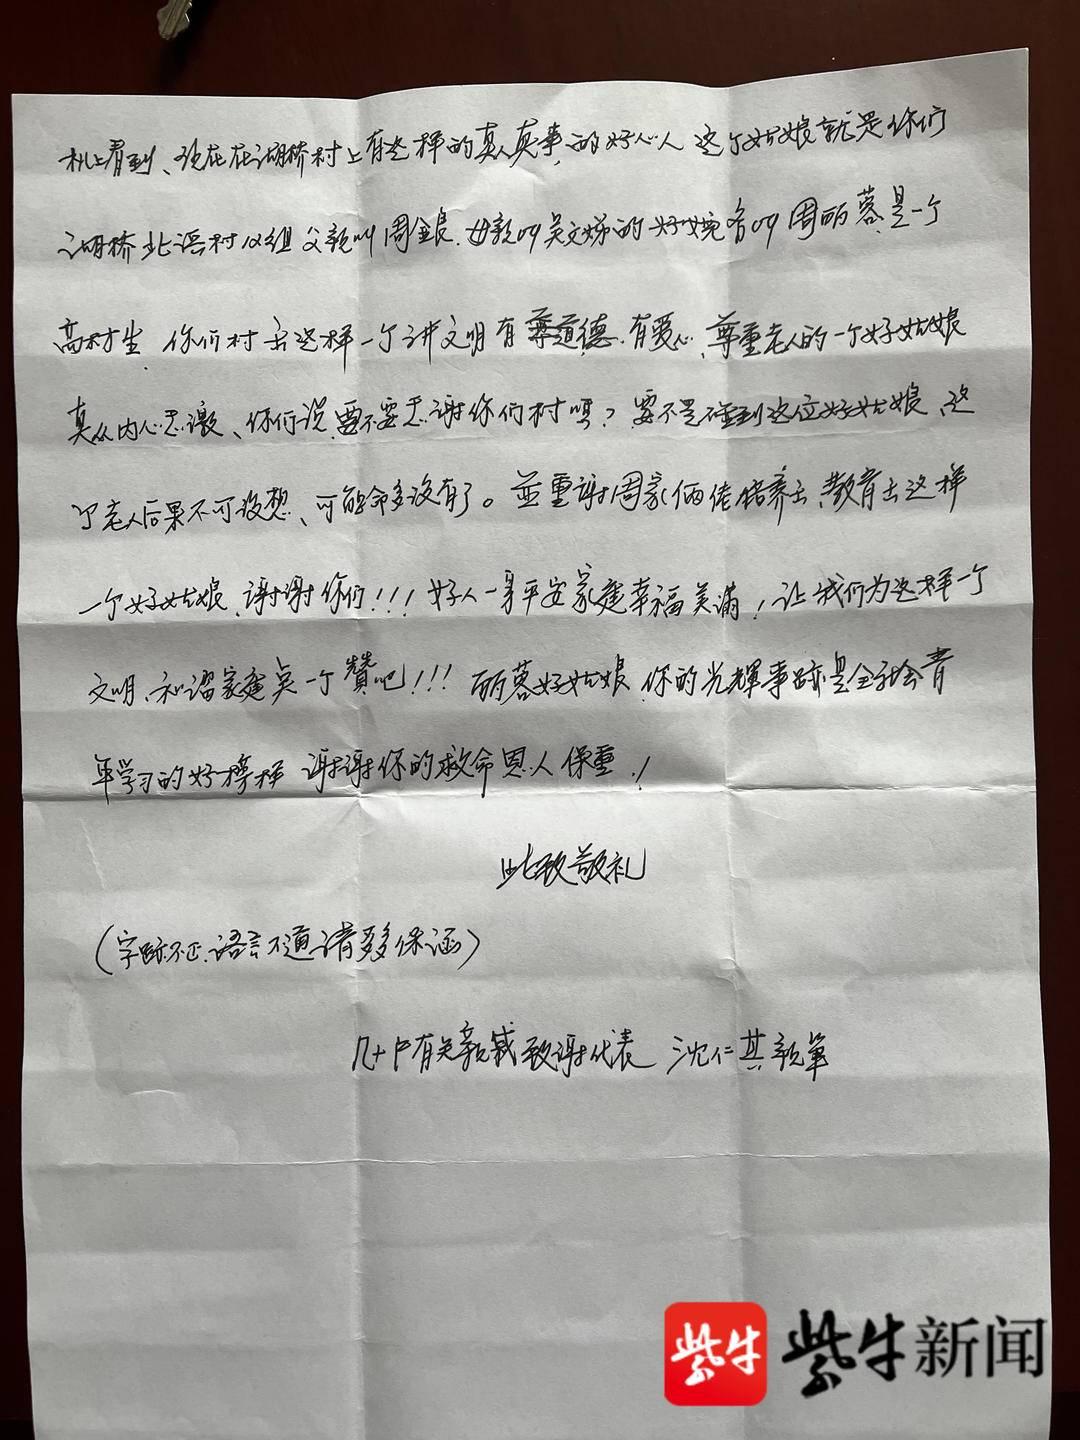 机上看到、现在在湖桥村上有这样的真人真事的好心人 这个姑娘就是你们
湖桥北浜村 组 父亲叫周金良.母亲叫吴文娣的好婉名叫周丽蓉是一个
高材生 你们村出这样一个讲文明有尊道德.有爱心、尊重老人的一个好姑娘
真从内心感激、你们说要不要感谢你们村吗?要不是碰到这位好姑娘、这
个老人后果不可设想、可能命多没有了。并重谢周家俩佬培养出、教育出这样
一个好姑娘、谢谢你们!!!好人一身平安家庭幸福美满!让我们为这样一个
文明、和谐家庭点一个赞吧!!! 丽蓉好姑娘、你的光辉事迹是全社会青
年学习的好榜样 谢谢你的救命恩人保重!
此致敬礼
(字迹不正.语言不通请多多保涵)
几十户有关亲戚致谢代表 沈仁其亲笔
紫牛 紫牛新闻